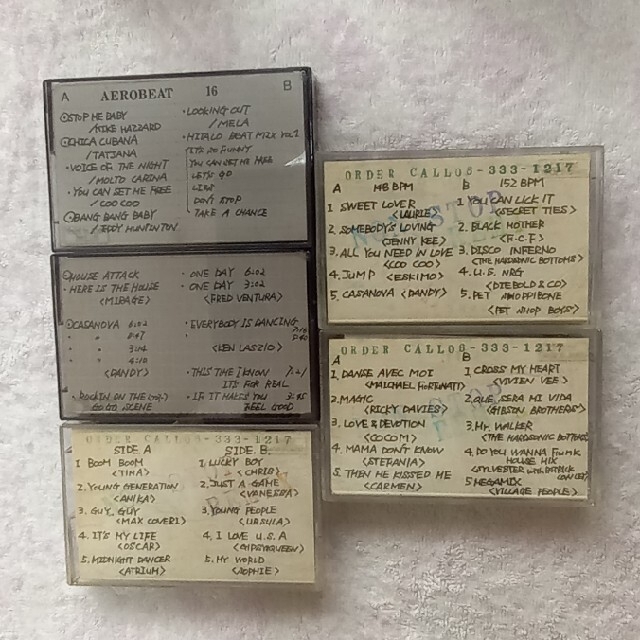 A AEROBEAT 16 B
STOP ME BABY
/ MIKE HAZZARD
CHICA CUBANA
/ TATJANA
VOICE OF THE NIGHT
/ MOLTO CARINA
YOU CAN SET ME FREE
/ COO COO
BANG BANG BABY
/ EDDY HUNTINTON
LOOKING OUT
/ MELA
HITALO BEAT MIX VOL.1
IT'S SO FUNNY
YOU CAN SET ME FREE
LET'S GO
DON'T STOP
TAKE A CHANCE
HOUSE ATTACK
HERE IS THE HOUSE
<MIRAGE>
CASANOVA 6:02
3:04
4:10
<DANDY>
ROCKIN ON THE
GO GO SCENE
ONE DAY 6:02
ONE DAY 3:02
<FRED VENTURA>
EVERYBODY IS DANCING
<KEN LASZLO>
THIS THE I KNOW
IT'S FOR REAL
IF IT MAKES YOU 3:45
FEEL GOOD
ORDER CALL06-333-1217
SIDE A
1 BOOM BOOM
<TINA>
2. YOUNG GENERATION
<ANIKA>
3. GUY, GUY
<MAX COVERI>
4. IT'S MY LIFE
<OSCAR>
5. MIDNIGHT DANCER
<ATRIUM>
SIDE B.
1. LUCKY BOY
<CHRIS>
2. JUST A GAME
<VANESSA>
3. YOUNG PEOPLE
<URSULA>
4. I LOVE U.S.A
<GIPSY&QUEEN>
5. MY WORLD
<SOPHIE>
ORDER CALL06-333-1217
A 148 BPM
1 SWEET LOVER
<LAURIE>
2. SOMEBODY'S LOVING
<JENNY KEE>
3. ALL YOU NEED IN LOVE
<COO COO>
4. JUMP <ESKIMO>
5. CASANOVA <DANDY>
B 152 BPM
1. YOU CAN LICK IT
<SECRET TIES>
2. BLACK MOTHER
<F.C.F>
3. DISCO INFERNO
<THE HARDSONIC BOTTOMS>
4. U.S. NRG
<DIEBOLD & CO>
5. PET SHOPPIBONE
<PET SHOP BOYS>
NON STOP
ORDER CALL06-333-1217
A
1. DANSE AVEC MOI
<MAICHAEL FORTUNATI>
2. MAGIC
<RICKY DAVIES>
3. LOVE & DEVOTION
<COCOM>
4. MAMA DON'T KNOW
<STEFANIA>
5. THEN HE KISSED ME
<CARMEN>
B
1. CROSS MY HEART
<VIVIEN VEE>
2. QUE SERA MI VIDA
<GIBSON BROTHERS>
3. MR WALKER
<THE HARDSONIC BOTTOMS
4. DO YOU WANNA FUNK
HOUSE MIX
<SYLVESTER WITH PATRICK
COWLEY>
5. MEGAMIX
<VILLAGE PEOPLE>